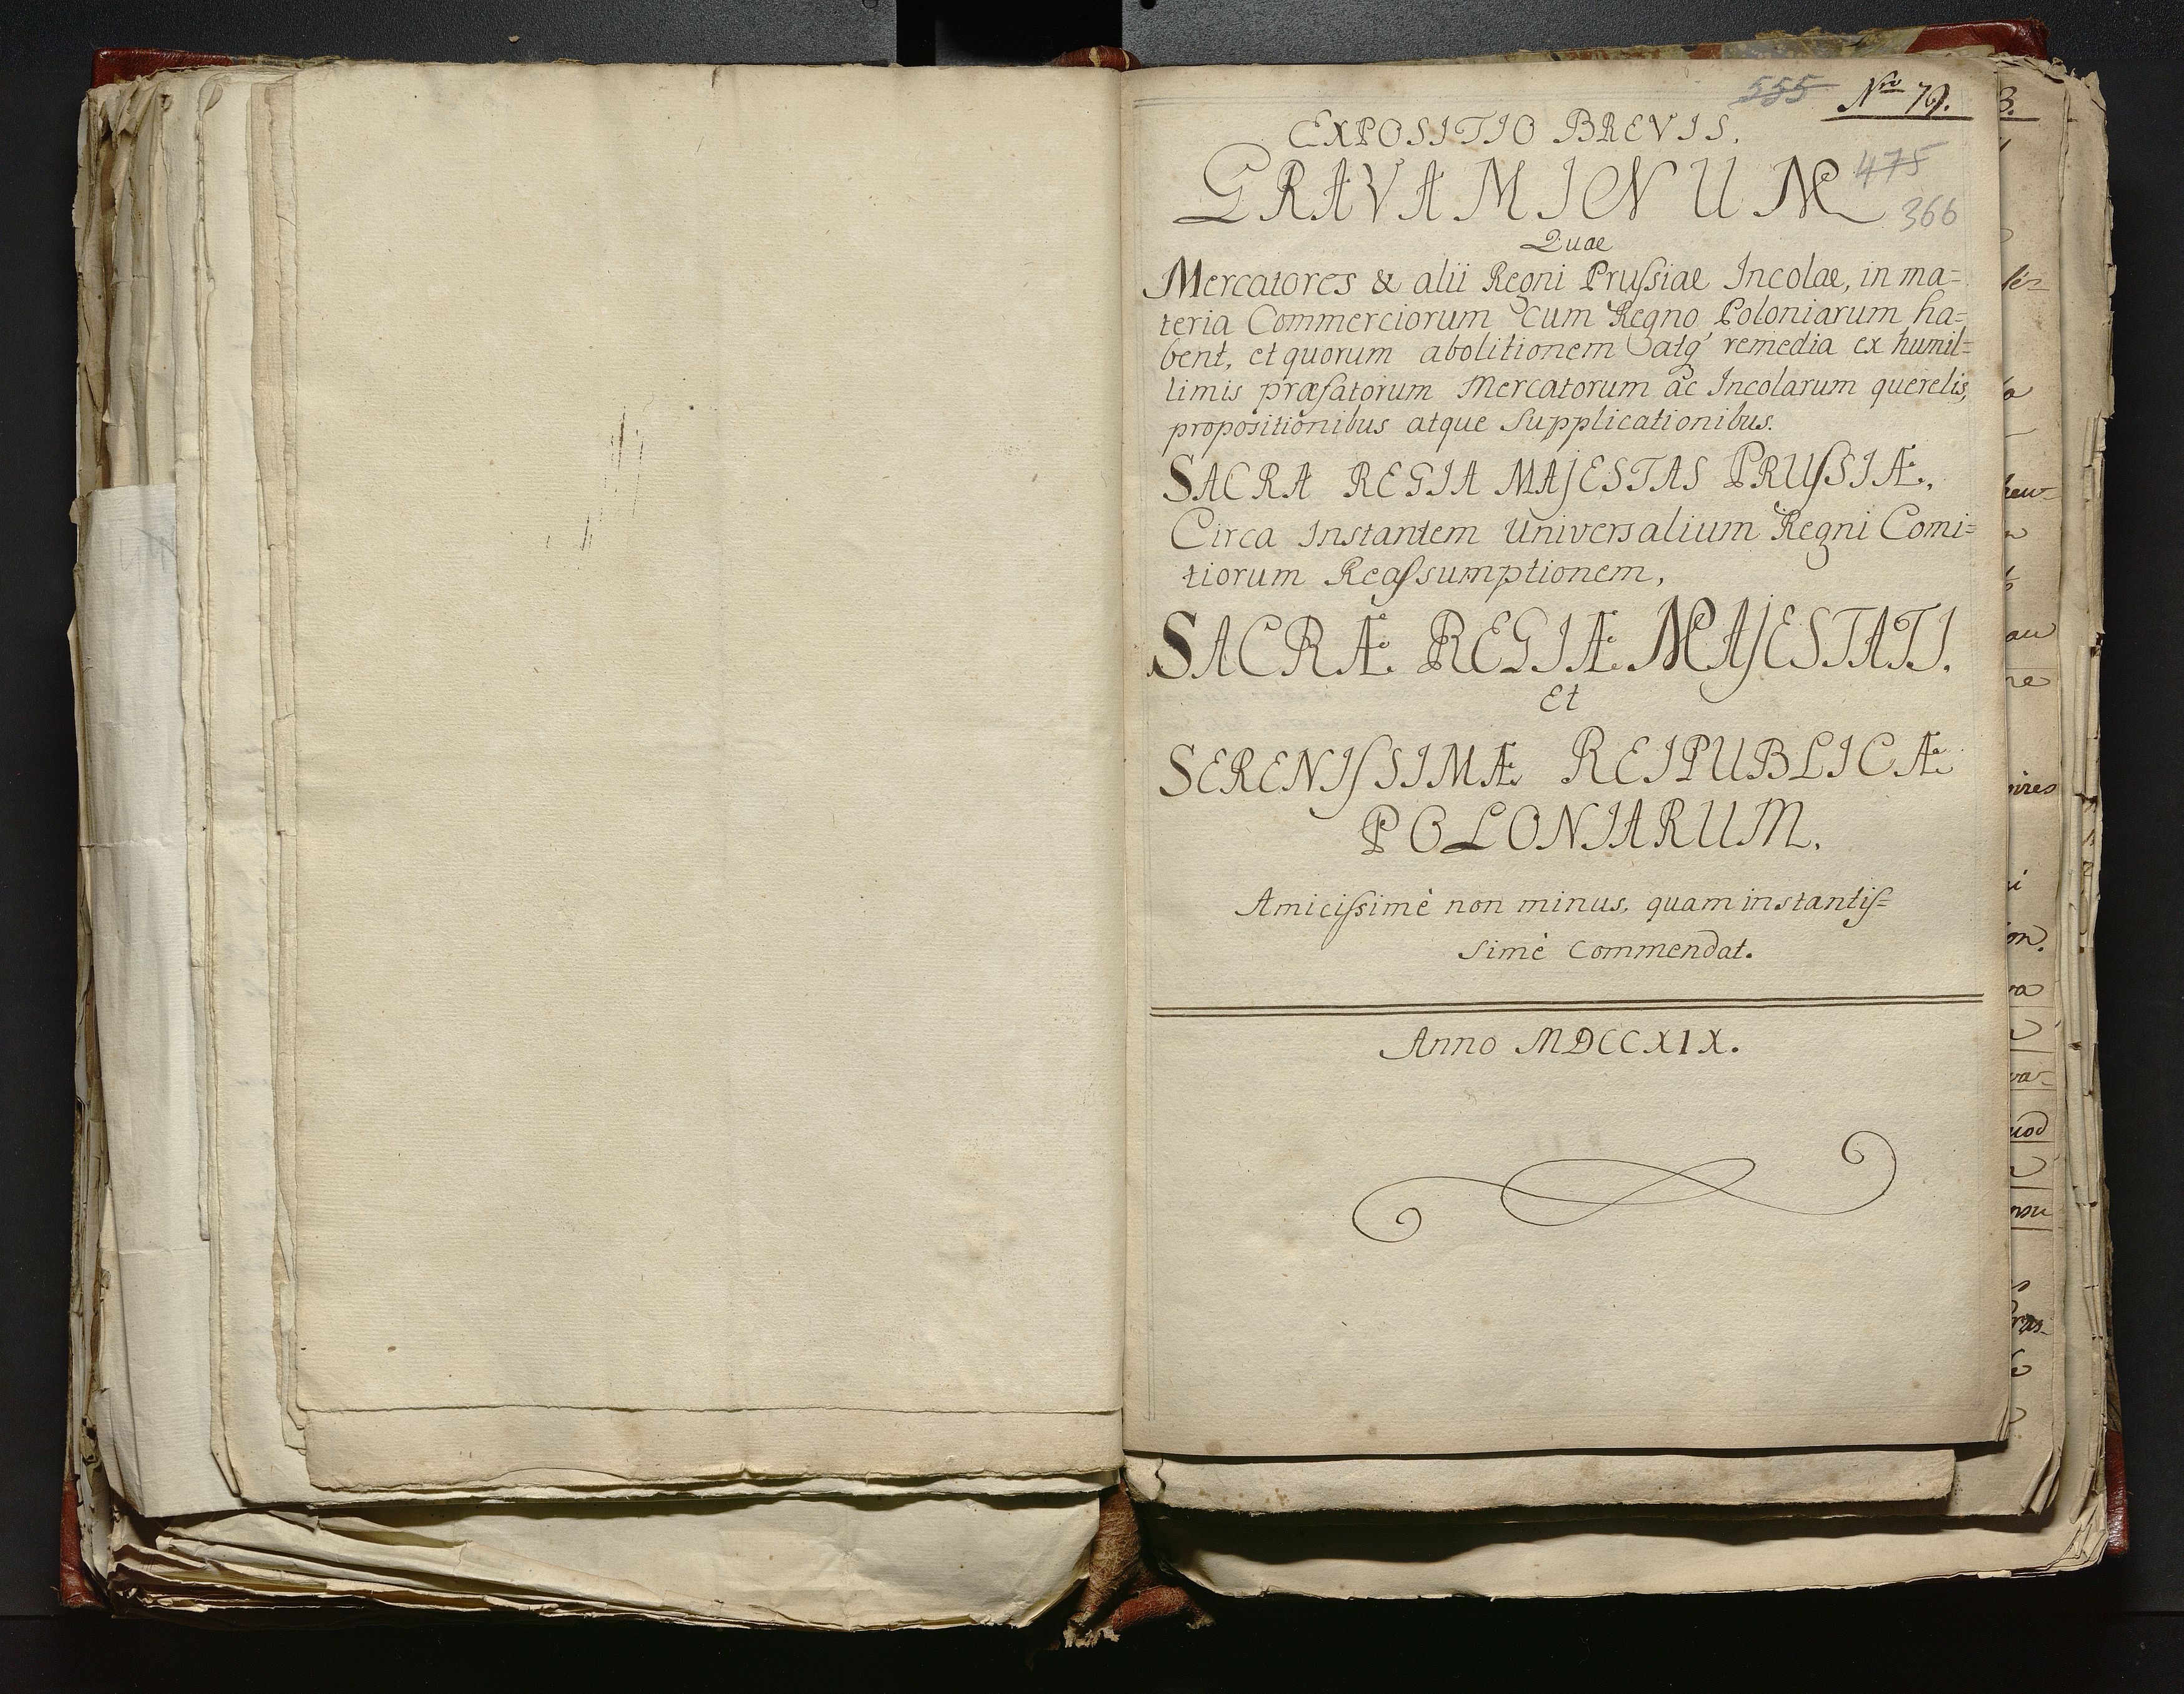 555 Nro 79.
EXPOSITIO BREVIS.
GRAVAMINUM
475
366
Quae
Mercatores & alii Regni Pruſsiae Incolae, in ma=
teria Commerciorum cum Regno Poloniarum ha=
bent, et quorum abolitionem atq' remedia ex humil=
limis præfatorum Mercatorum ac Incolarum querelis,
propositionibus atque Supplicationibus.
SACRA REGIA MAJESTAS PRUſSIÆ.,
Circa Instantem Universalium Regni Comi=
tiorum Reaſsumptionem,
SACRÆ REGIÆ MAJESTATI.
Et
SERENIſSIMÆ REIPUBLICÆ
POLONIARUM.
Amiciſsimè non minus, quam instantiſ=
simè Commendat.
Anno MDCCXIX.